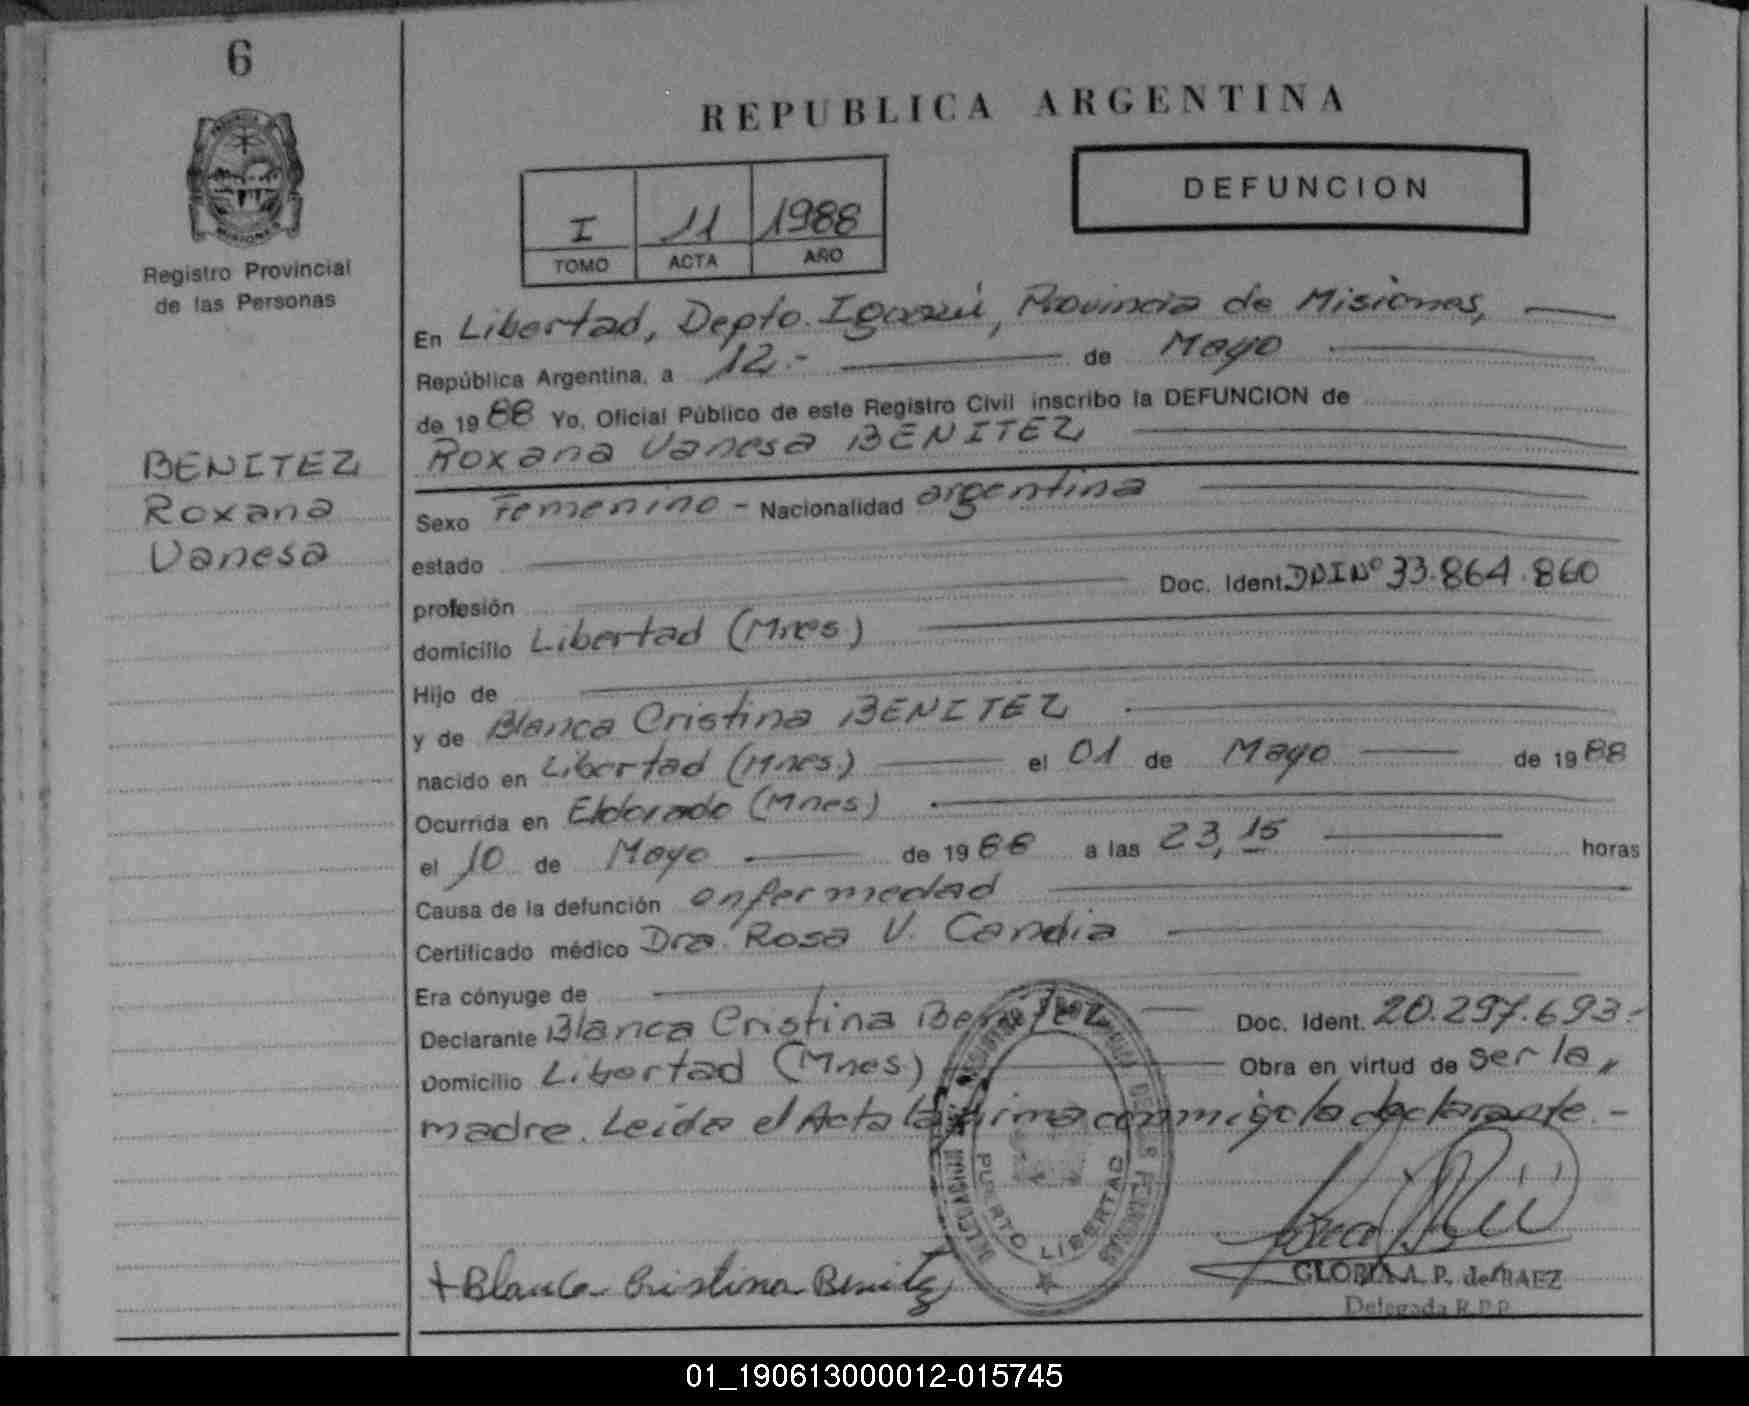 6
REPUBLICA ARGENTINA
DEFUNCION
I 11 1988
TOMO ACTA AÑO
Registro Provincial
de las Personas
En Libertad, Depto. Iguazú, Provincia de Misiones,
República Argentina, a 12.- de Mayo
de 1988 Yo, Oficial Público de este Registro Civil inscribo la DEFUNCION de
Roxana Vanesa BENITEZ
BENITEZ
Roxana
Vanesa
Sexo Femenino - Nacionalidad argentina
estado
profesión Doc. Ident. DNI Nº 33.864.860
domicilio Libertad (Mnes)
Hijo de
y de Blanca Cristina BENITEZ
nacido en Libertad (Mnes.) el 01 de Mayo de 1988
Ocurrida en Eldorado (Mnes)
el 10 de Mayo de 1988 a las 23,15 horas
Causa de la defunción enfermedad
Certificado médico Dra. Rosa V. Candia
Era cónyuge de
Declarante Blanca Cristina Benitez Doc. Ident. 20.297.693.-
Domicilio Libertad (Mnes) Obra en virtud de ser la
madre. Leida el Acta la firma conmigo la declarante.-
PUERTO LIBERTAD
+Blanca Cristina Benitez
GLORIA A. P. de BAEZ
Delegada R.P.P.
01_190613000012-015745